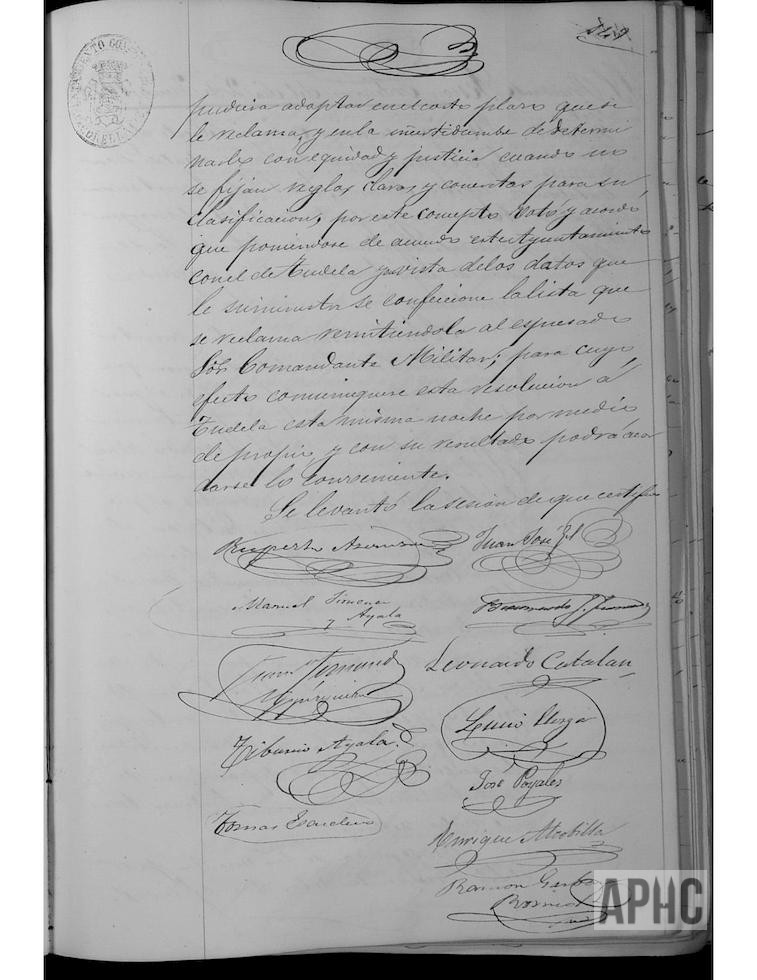 pudiera adoptar en el corto plazo que se
le reclama, y en la incertidumbe de determi
narlo con equidad y justicia cuando no
se fijan reglas claras y concretas para su
clasificacion, por este concepto votó y acordó
que poniendose de acuerdo este Ayuntamiento
con el de Tudela y a vista de los datos que
le suministra se confeccione la lista que
se reclama remitiendola al espresado
Sor. Comandante Militar; para cuyo
efecto comuniquese esta resolucion á
Tudela esta misma noche por medio
de propio, y con su resultado podrá acor
darse lo conveniente.
Se levantó la sesion de que certifico
Ruperto
Juan José Gil
Manuel Jimenez
y Ayala
Leonardo Catalan
Tiburcio Ayala
Lucio
José Pozales
Tomas Escudero
Enrique Alcobilla
Ramon
APHC